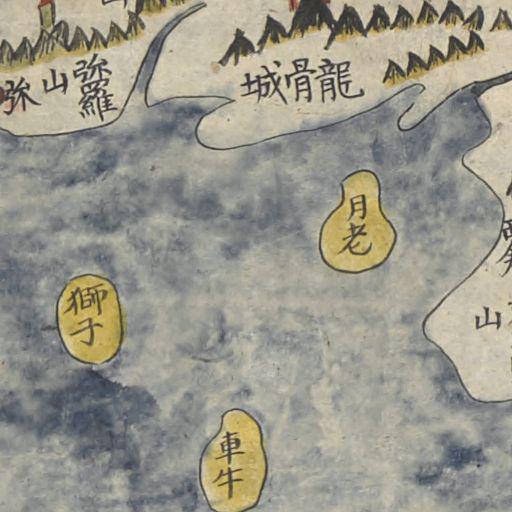 龍骨城
弥羅
山
弥
月老
獅子
車牛
山